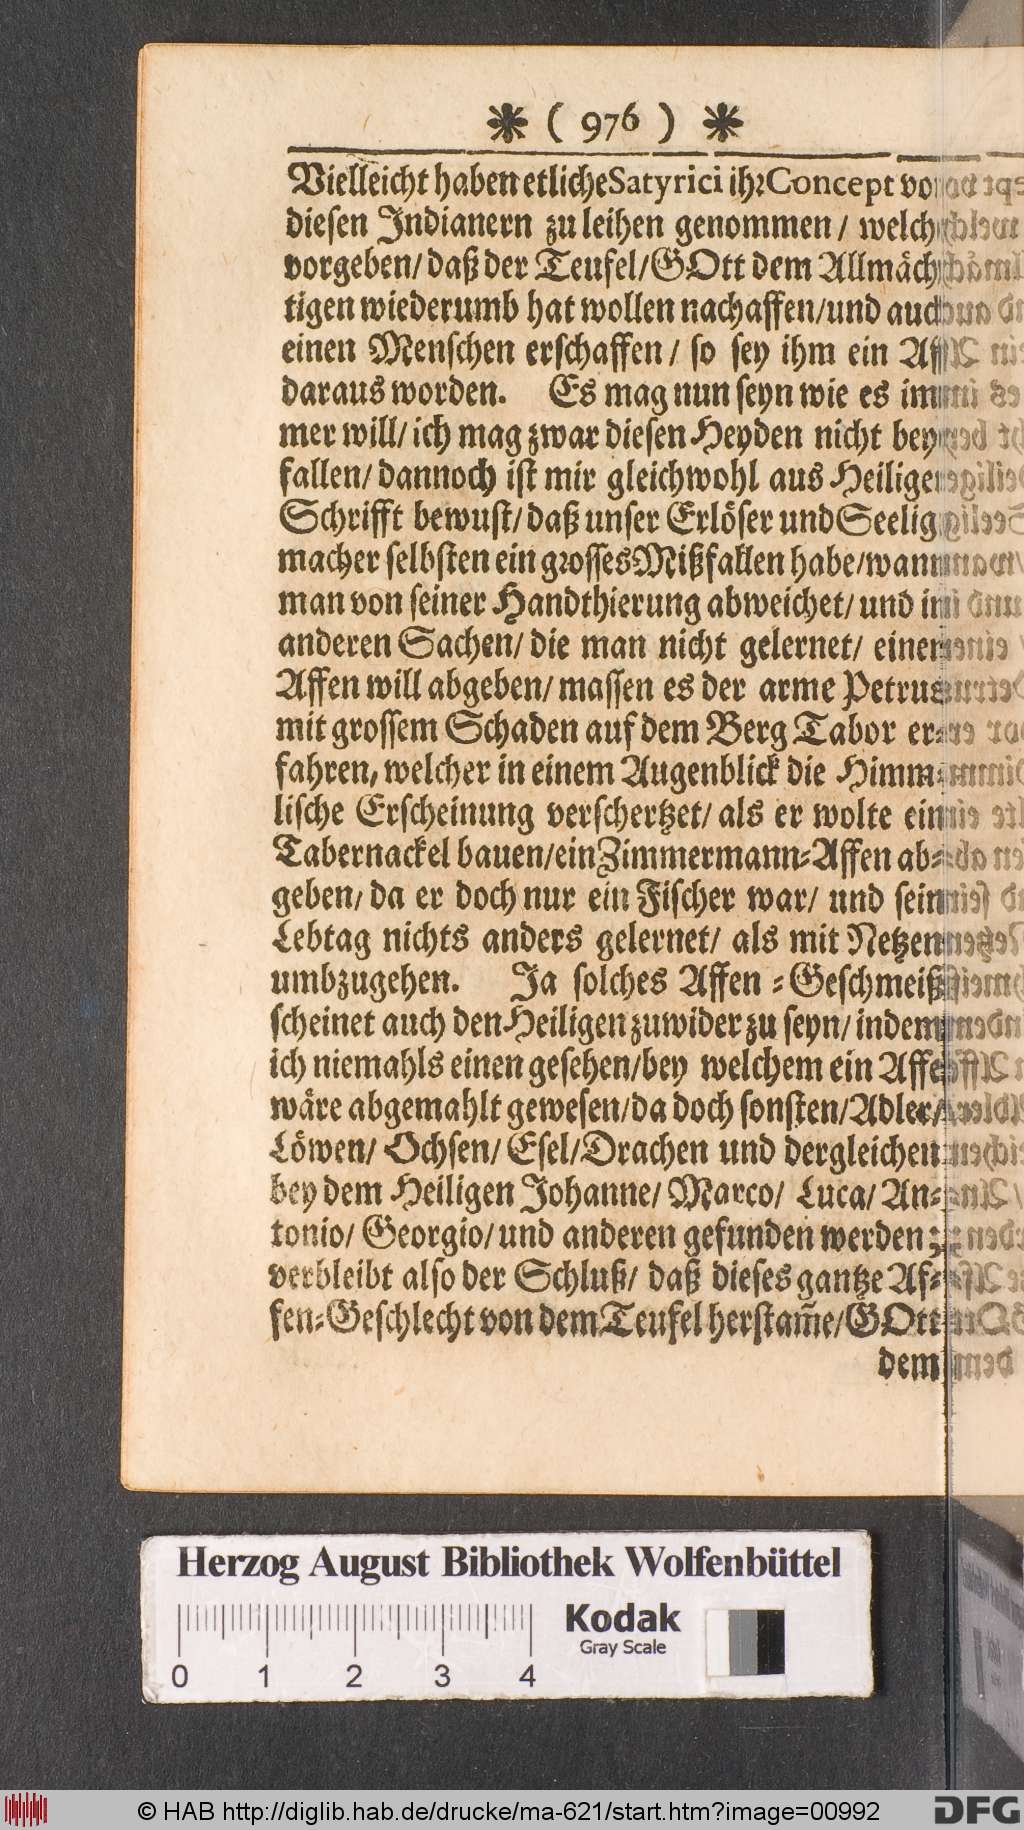 * ( 976 ) *
Vielleicht haben etliche Satyrici ihr Concept von
diesen Indianern zu leihen genommen / welche
vorgeben / daß der Teufel / GOtt dem Allmäch-
tigen wiederumb hat wollen nachaffen / und auch
einen Menschen erschaffen / so sey ihm ein Aff
daraus worden. Es mag nun seyn wie es im-
mer will / ich mag zwar diesen Heyden nicht bey-
fallen / dannoch ist mir gleichwohl aus Heiliger
Schrifft bewust / daß unser Erlöser und Seelig-
macher selbsten ein grosses Mißfallen habe / wann
man von seiner Handthierung abweichet / und in
anderen Sachen / die man nicht gelernet / einen
Affen will abgeben / massen es der arme Petrus
mit grossem Schaden auf dem Berg Tabor er-
fahren, welcher in einem Augenblick die Himm-
lische Erscheinung verschertzet / als er wolte ein
Tabernackel bauen / ein Zimmermann-Affen ab-
geben / da er doch nur ein Fischer war / und sein
Lebtag nichts anders gelernet / als mit Netzen
umbzugehen. Ja solches Affen-Geschmeiß
scheinet auch den Heiligen zuwider zu seyn / indem
ich niemahls einen gesehen / bey welchem ein Aff
wäre abgemahlt gewesen / da doch sonsten / Adler /
Löwen / Ochsen / Esel / Drachen und dergleichen
bey dem Heiligen Johanne / Marco / Luca / An-
tonio / Georgio / und anderen gefunden werden;
verbleibt also der Schluß / daß dieses gantze Af-
fen-Geschlecht von dem Teufel herstam̃e / GOtt
dem
Herzog August Bibliothek Wolfenbüttel
Kodak
Gray Scale
0 1 2 3 4
© HAB http://diglib.hab.de/drucke/ma-621/start.htm?image=00992
DFG